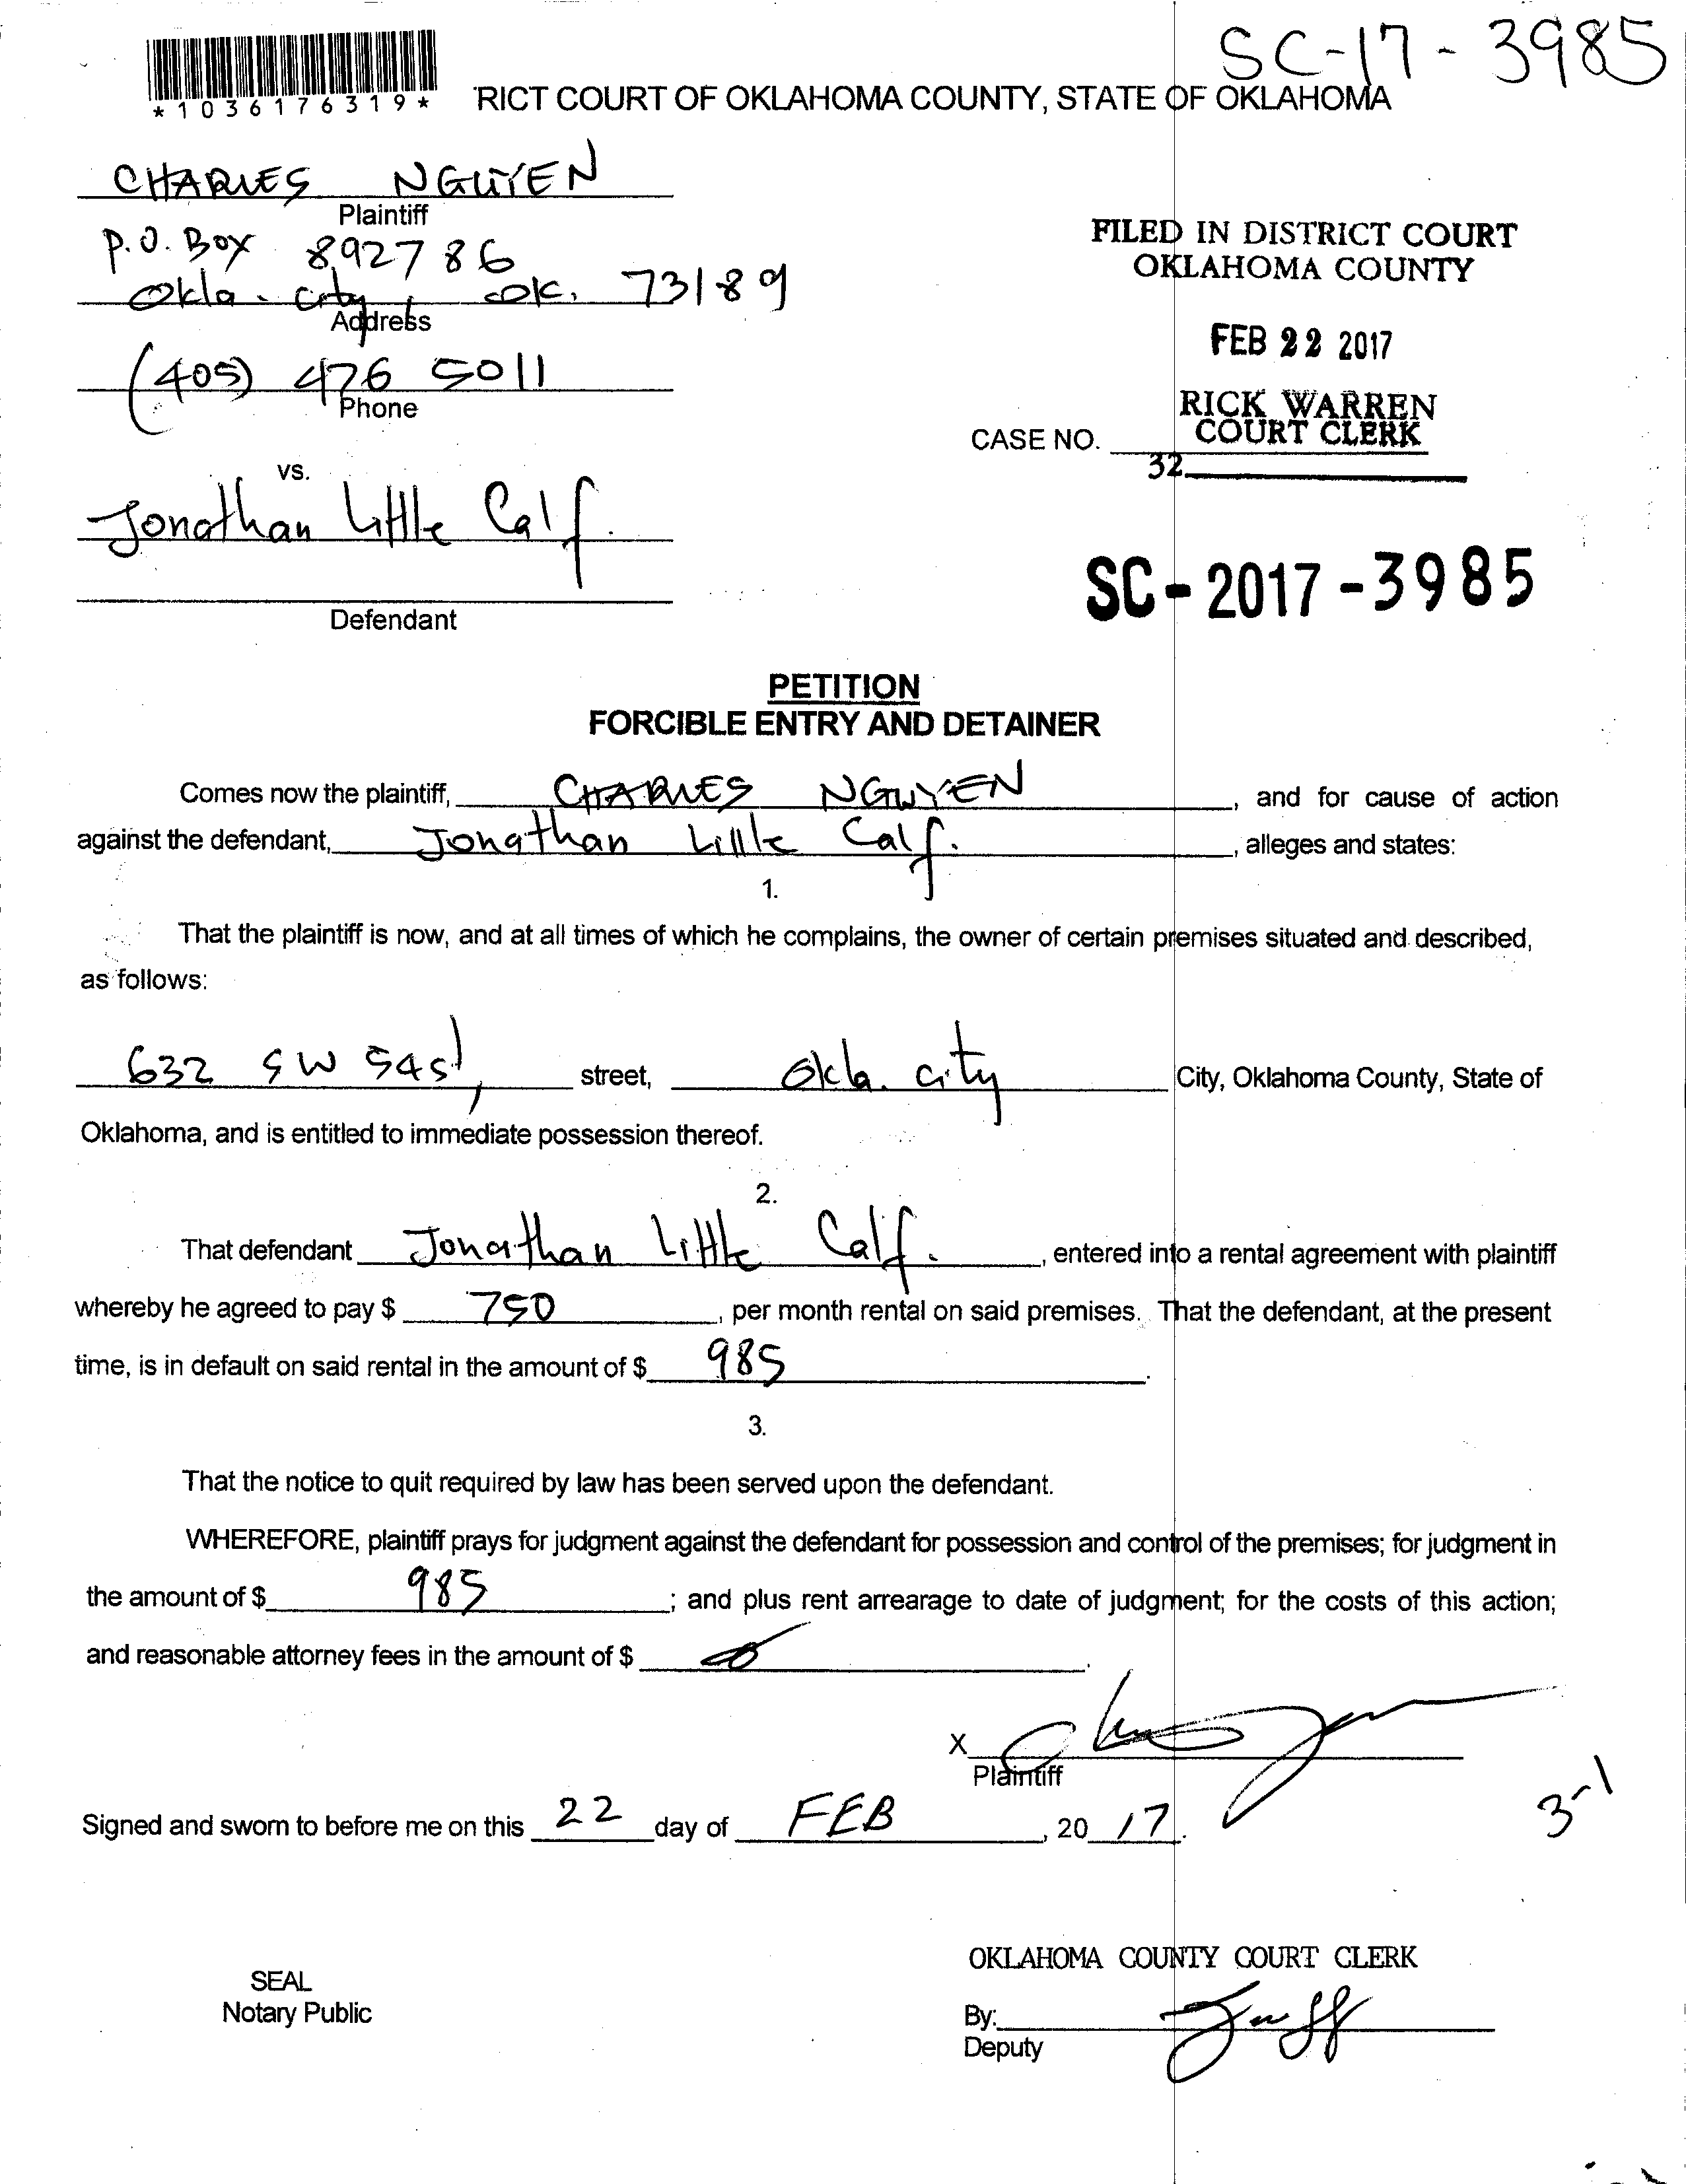 SC-17-3985
*1036176319*
'RICT COURT OF OKLAHOMA COUNTY, STATE OF OKLAHOMA
CHARLES NGUYEN
Plaintiff
P.O. Box 892786
Okla. City, OK. 73189
Address
(405) 476 5011
Phone
vs.
Jonathan Little Calf.
Defendant
FILED IN DISTRICT COURT
OKLAHOMA COUNTY
FEB 22 2017
RICK WARREN
COURT CLERK
CASE NO.
32
SC-2017-3985
PETITION
FORCIBLE ENTRY AND DETAINER
Comes now the plaintiff, CHARLES NGUYEN, and for cause of action
against the defendant, Jonathan Little Calf., alleges and states:
1.
That the plaintiff is now, and at all times of which he complains, the owner of certain premises situated and described,
as follows:
632 SW 54st, street, Okla. city City, Oklahoma County, State of
Oklahoma, and is entitled to immediate possession thereof.
2.
That defendant Jonathan Little Calf., entered into a rental agreement with plaintiff
whereby he agreed to pay $ 750, per month rental on said premises. That the defendant, at the present
time, is in default on said rental in the amount of $ 985.
3.
That the notice to quit required by law has been served upon the defendant.
WHEREFORE, plaintiff prays for judgment against the defendant for possession and control of the premises; for judgment in
the amount of $ 985; and plus rent arrearage to date of judgment; for the costs of this action;
and reasonable attorney fees in the amount of $ 0.
X
Plaintiff
Signed and sworn to before me on this 22 day of FEB, 2017.
3-1
SEAL
Notary Public
OKLAHOMA COUNTY COURT CLERK
By:
Deputy